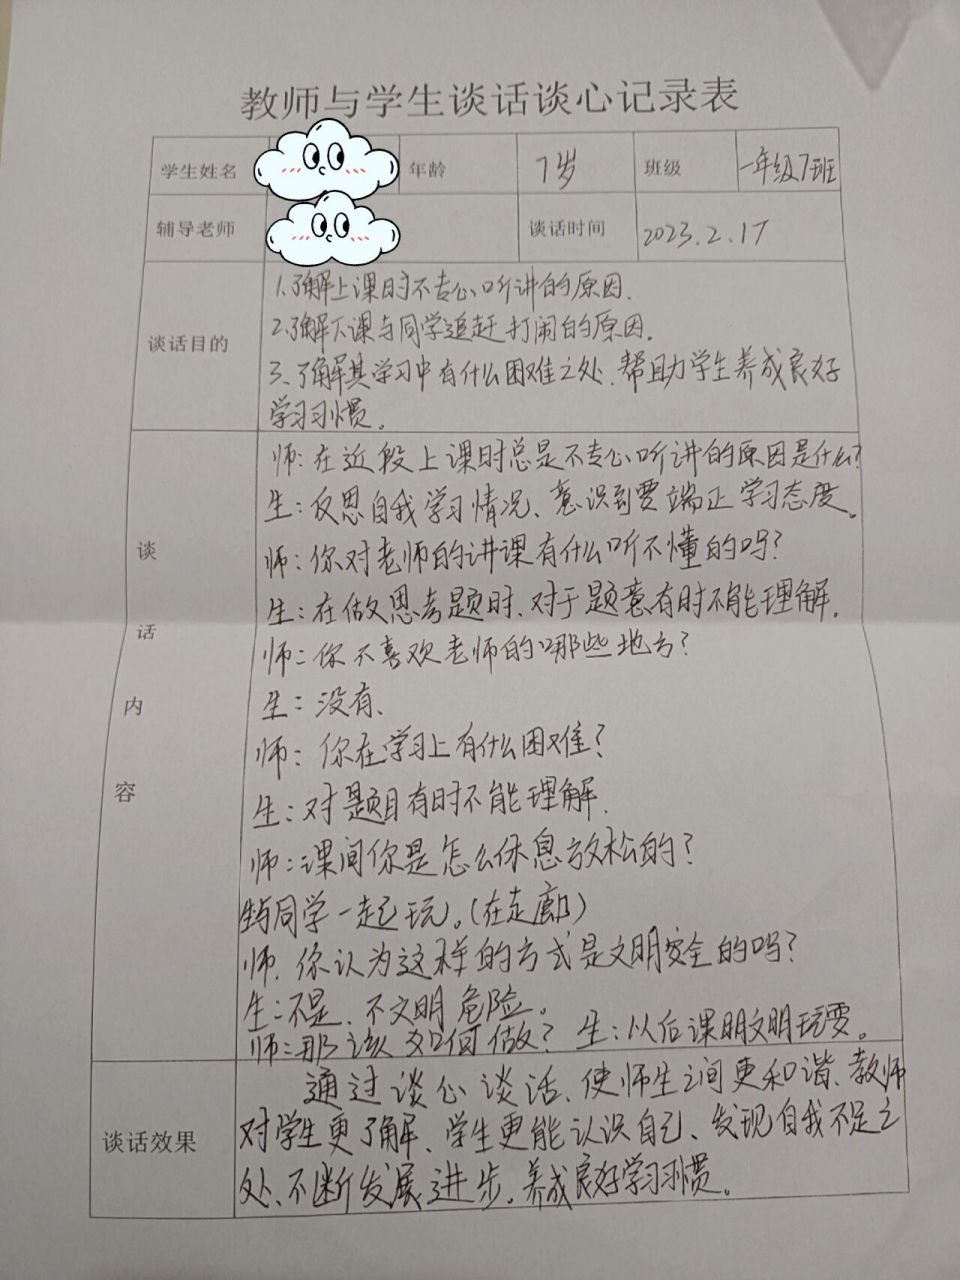 教师与学生谈话谈心记录表
学生姓名 年龄 7岁 班级 一年级7班
辅导老师 谈话时间 2023.2.17
谈话目的
1.了解上课时不专心听讲的原因.
2.了解下课与同学追赶打闹的原因.
3.了解其学习中有什么困难之处、帮助学生养成良好
学习习惯。
谈话内容
师:在近段上课时总是不专心听讲的原因是什么?
生:反思自我学习情况、意识到要端正学习态度。
师:你对老师的讲课有什么听不懂的吗?
生:在做思考题时、对于题意有时不能理解.
师:你不喜欢老师的哪些地方?
生:没有、
师:你在学习上有什么困难?
生:对题目有时不能理解.
师:课间你是怎么休息放松的?
生与同学一起玩。(在走廊)
师.你认为这样的方式是文明安全的吗?
生:不是、不文明危险。
师:那该如何做? 生:以后课明文明玩耍。
谈话效果
通过谈心谈话、使师生之间更和谐、教师
对学生更了解、学生更能认识自己、发现自我不足之
处、不断发展进步.养成良好学习习惯。